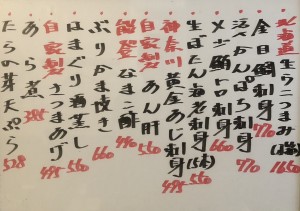 北海道生うにつまみ(塩) 1650
金目鯛刺身 770
活べかんぱち刺身 770
メジ鮪トロ刺身 660
生ぼたん海老刺身(5本) 550
神奈川黄金あじ刺身 495
自家製あん肝 550
能登なまこ酢 440
ぶりかま焼き 660
はまぐり酒蒸し 550
自家製さつまあげ 495
あら煮 385
たらの芽天ぷら 528